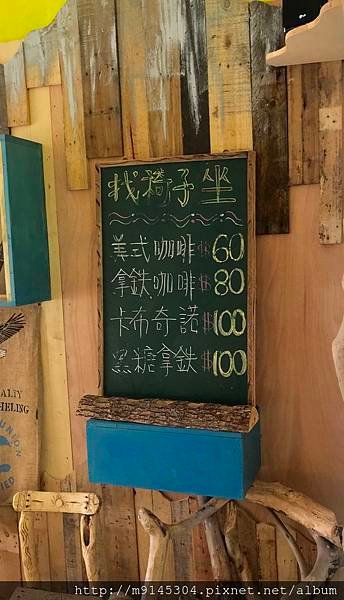 找椅子坐
美式咖啡 $60
拿鉄咖啡 $80
卡布奇諾 $100
黑糖拿鉄 $100
http://m9145304.pixnet.net/album